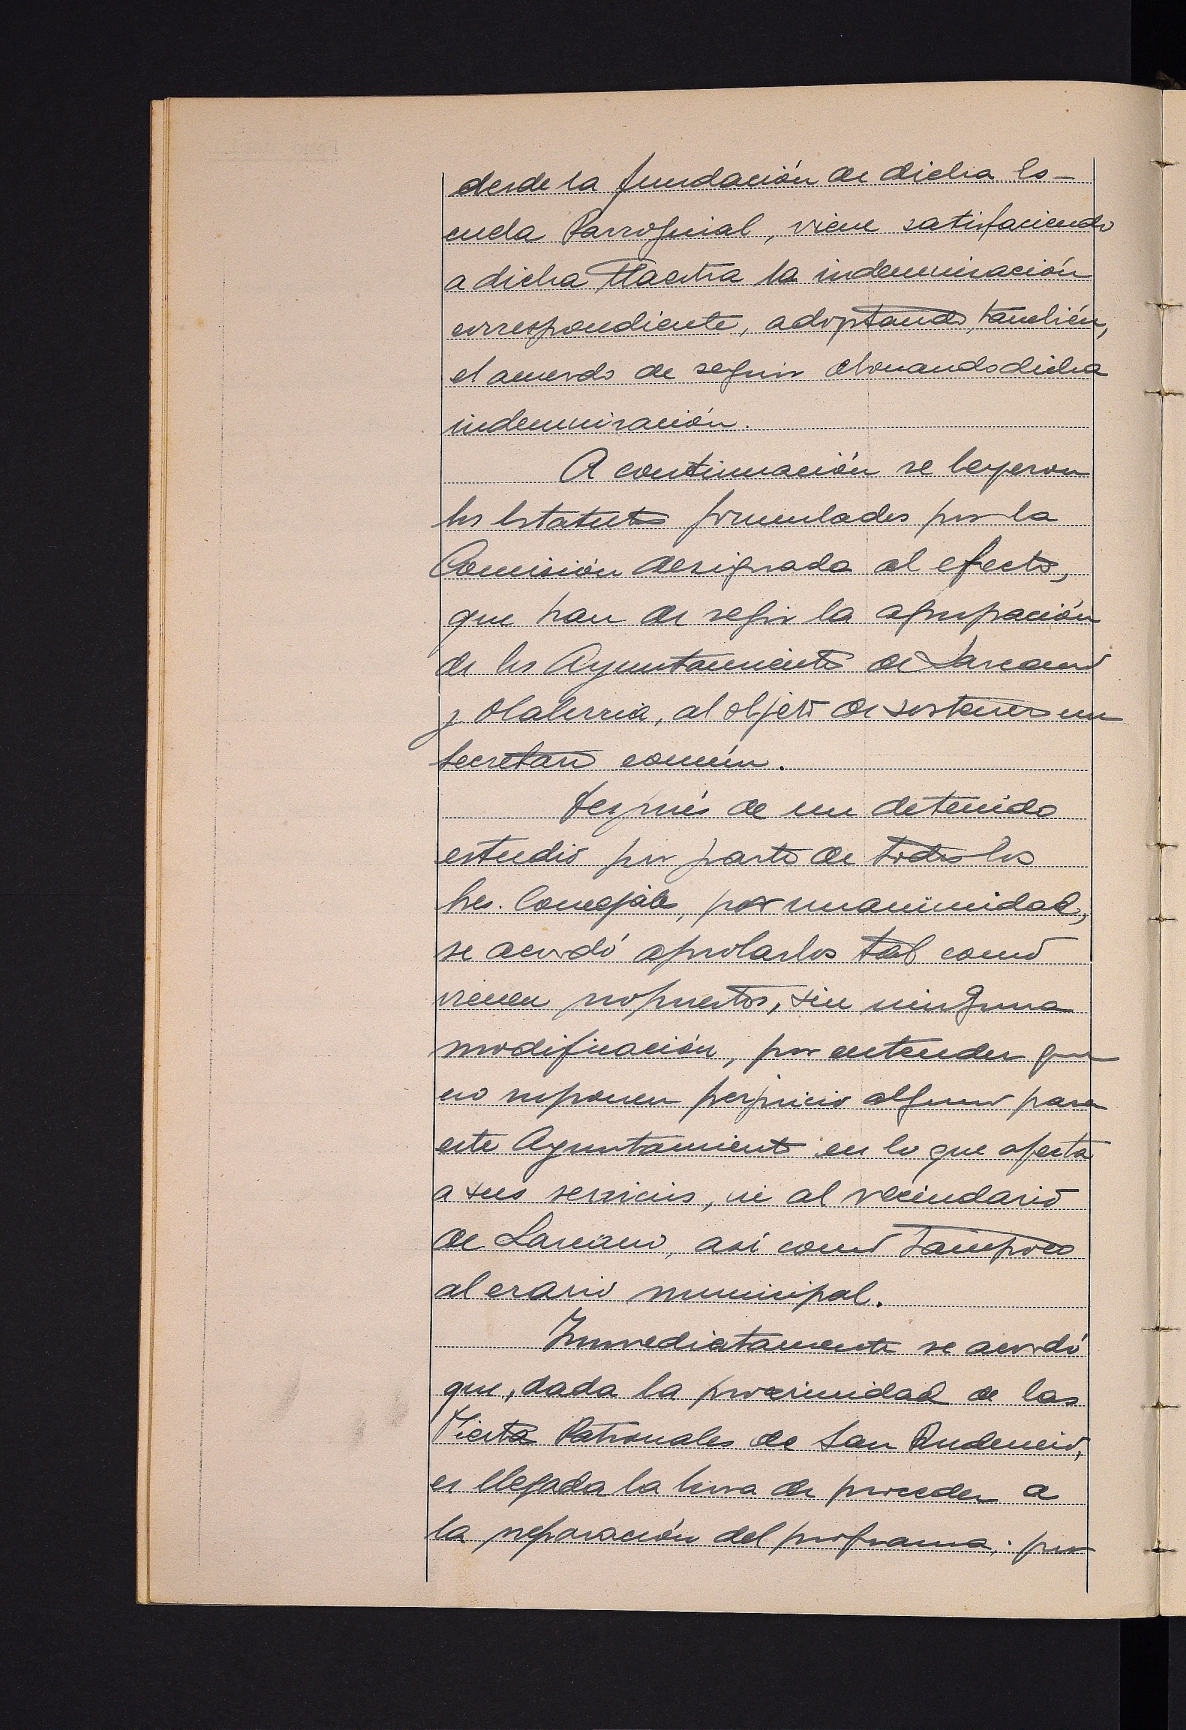 desde la fundación de dicha Es-
cuela Parroquial, viene satisfaciendo
a dicha Maestra la indemnización
correspondiente, adoptando, también,
el acuerdo de seguir abonando dicha
indemnización.
A continuación se leyeron
los Estatutos formulados por la
Comisión designada al efecto,
que han de regir la agrupación
de los Ayuntamientos de Lazcano
y Olaberria, al objeto de sostener un
Secretario común.
Después de un detenido
estudio por parte de todos los
Sres. Concejales, por unanimidad,
se acordó aprobarlos tal como
vienen propuestos, sin ninguna
modificación, por entender que
no suponen perjuicio alguno para
este Ayuntamiento en lo que afecta
a sus servicios, ni al vecindario
de Lazcano, así como tampoco
al erario municipal.
Inmediatamente se acordó
que, dada la proximidad de las
Fiestas Patronales de San Prudencio,
es llegada la hora de proceder a
la preparación del programa, por